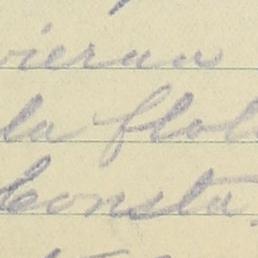 vieran
la flot
Consta.